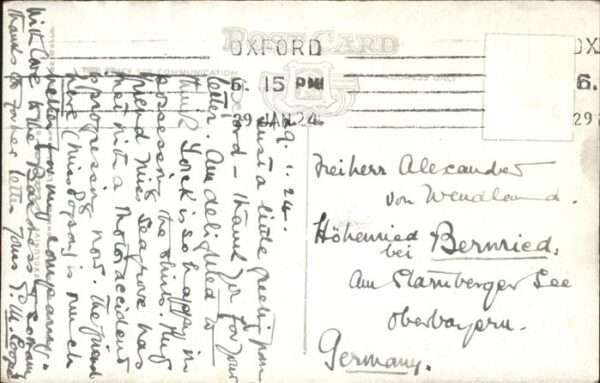 POST CARD
OXFORD
6. 15 PM
29 JAN 24
OX
6.
29
29.1.24.
Just a little greeting from
Oxford – Thank you for your
letter. Am delighted to
think Jack is so happy in
possessing the shirts. My
friend Miss Seagrove has
met with a motor accident
& progressing now. The friend
here (Miss is much
better for my company.
With love to the Baroness &
thanks for her letter yours
Freiherr Alexander
von Wendland.
Höhenried
bei Bernried.
Am Starnberger See
Oberbayern.
Germany.